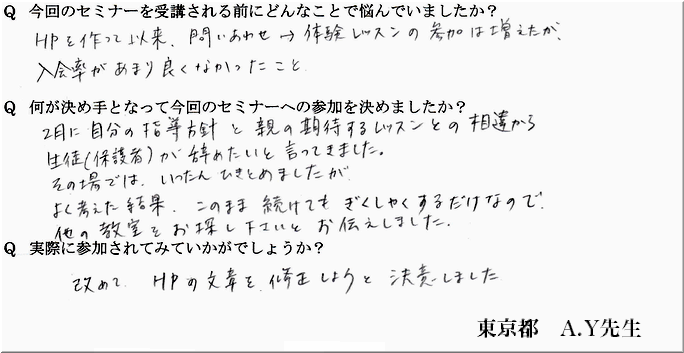 Q 今回のセミナーを受講される前にどんなことで悩んでいましたか？
HPを作って以来、問いあわせ→体験レッスンの参加は増えたが、
入会率があまり良くなかったこと
Q 何が決め手となって今回のセミナーへの参加を決めましたか？
2月に自分の指導方針と親の期待するレッスンとの相違から
生徒(保護者)が辞めたいと言ってきました。
その場では、いったんひきとめましたが
よく考えた結果、このまま続けてもぎくしゃくするだけなので、
他の教室をお探し下さいとお伝えしました。
Q 実際に参加されてみていかがでしょうか？
改めて、HPの文章を修正しようと決意しました
東京都 A.Y先生